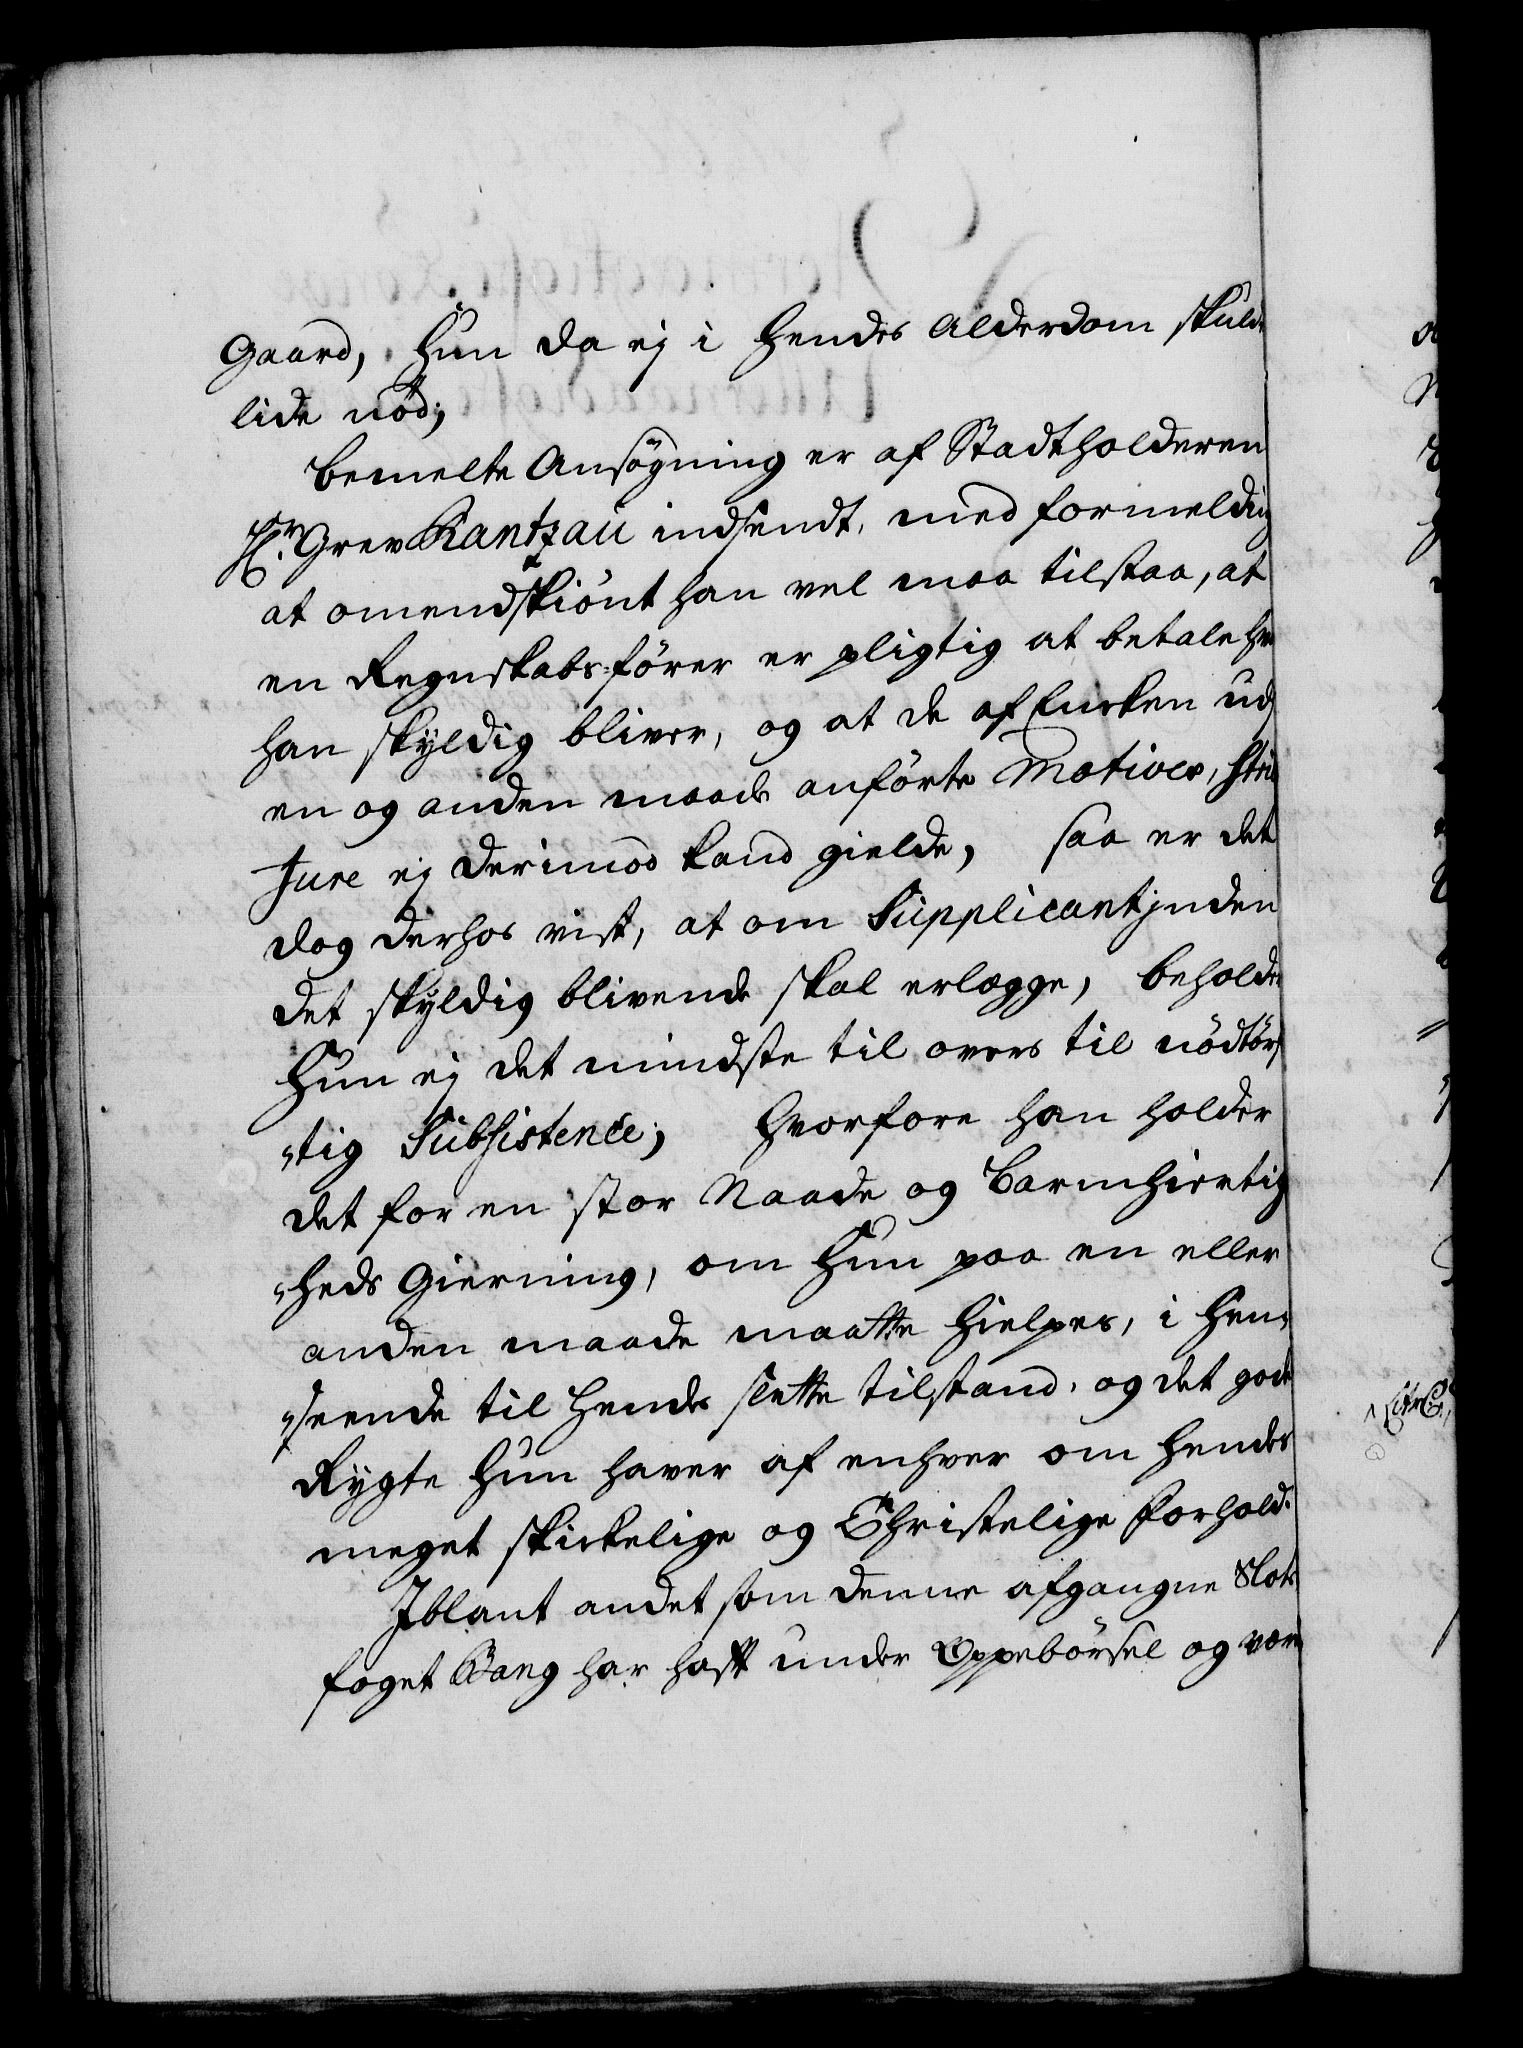 Gaard, Hun da ej i Hendes Alderdom skulde
lide nød;
bemelte Ansøgning er af Stadtholderen
Hr. Grev Rantzau indsendt, med formelding
at omendskiønt han vel maa tilstaa, at
en Regnskabs-fører er pligtig at betale hve
han skyldig bliver, og at de af Enken ud
en og anden maade anførte Motiver, stri
Jure ej derimod kand gielde, saa er det
dog derhos vist, at om Supplicantjnden
det skyldig blivende skal erlægge, beholder
Hun ej det mindste til overs til nødtørf
"tig Subsistence; Hvorfore han holder
det for en stor Naade og Barmhiertig
"heds Gierning, om Hun paa en eller
anden maade maatte hielpes, i Hen-
"seende til Hendes slette tilstand, og det gode
Rygte Hun haver af enhver om hendes
meget skikelige og Christelige Forhold.
Iblant andet som denne afgangne Slots
foget Bang har haft under Oppebørsel og vær
Litr.